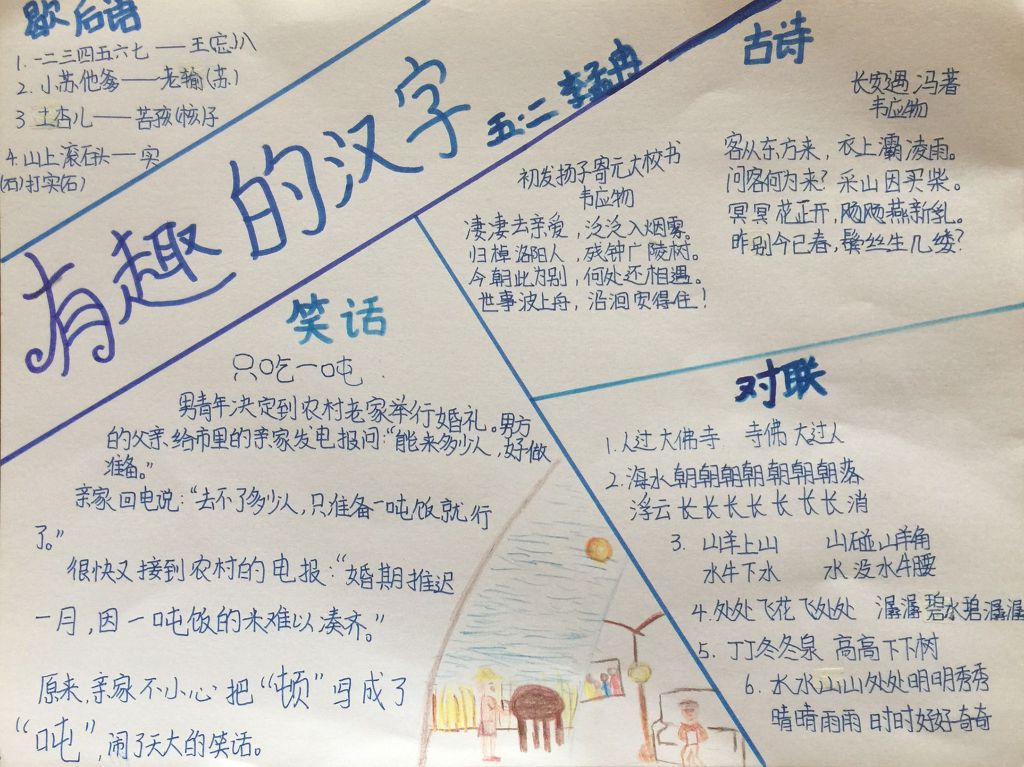 歇后语
1. 一二三四五六七——王(忘)八
2. 小苏他爹——老输(苏)
3 土杏儿——苦孩(核)子
4. 山上滚石头——实
(石)打实(石)
有趣的汉字
五·二 李孟冉
古诗
初发扬子寄元大校书
韦应物
凄凄去亲爱，泛泛入烟雾。
归棹洛阳人，残钟广陵树。
今朝此为别，何处还相遇。
世事波上舟，沿洄安得住！
长安遇冯著
韦应物
客从东方来，衣上灞凌雨。
问客何为来？采山因买柴。
冥冥花正开，飏飏燕新乳。
昨别今已春，鬓丝生几缕？
笑话
只吃一吨
男青年决定到农村老家举行婚礼。男方
的父亲给市里的亲家发电报问：“能来多少人，好做
准备。”
亲家回电说：“去不了多少人，只准备一吨饭就行
了。”
很快又接到农村的电报：“婚期推迟
一月，因一吨饭的米难以凑齐。”
原来，亲家不小心把“顿”写成了
“吨”，闹了天大的笑话。
对联
1. 人过大佛寺 寺佛大过人
2. 海水朝朝朝朝朝朝朝落
浮云长长长长长长长消
3. 山羊上山 山碰山羊角
水牛下水 水没水牛腰
4. 处处飞花飞处处 潺潺碧水碧潺潺
5. 丁丁冬冬泉 高高下下树
6. 水水山山处处明明秀秀
晴晴雨雨时时好好奇奇